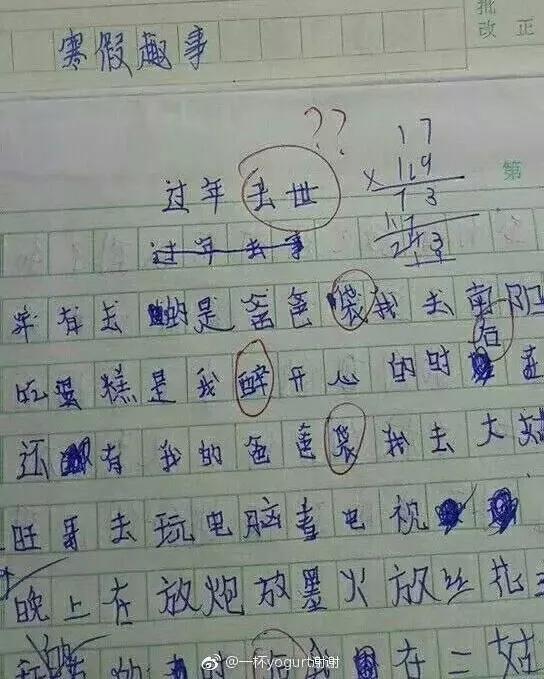 批
改正
寒假趣事
??
17
×119
过年去世
73
第
17
过年去事
243
有去的是爸爸袋我去
吃蛋糕是我醉开心的时
还有我的爸爸袋我去大
旺哥去玩电脑看电视
晚上在放炮放墨火放丝花
在二姑
@一杯yogurt谢谢